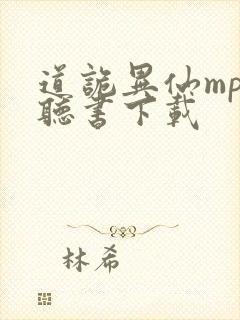 道詭異仙mp
聽書下載
林希